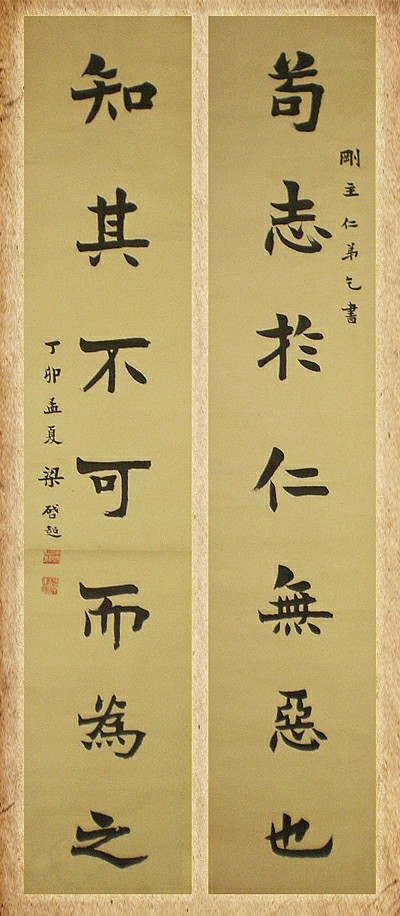 剛主仁弟乞書
苟志於仁無惡也
知其不可而為之
丁卯孟夏 梁啟超